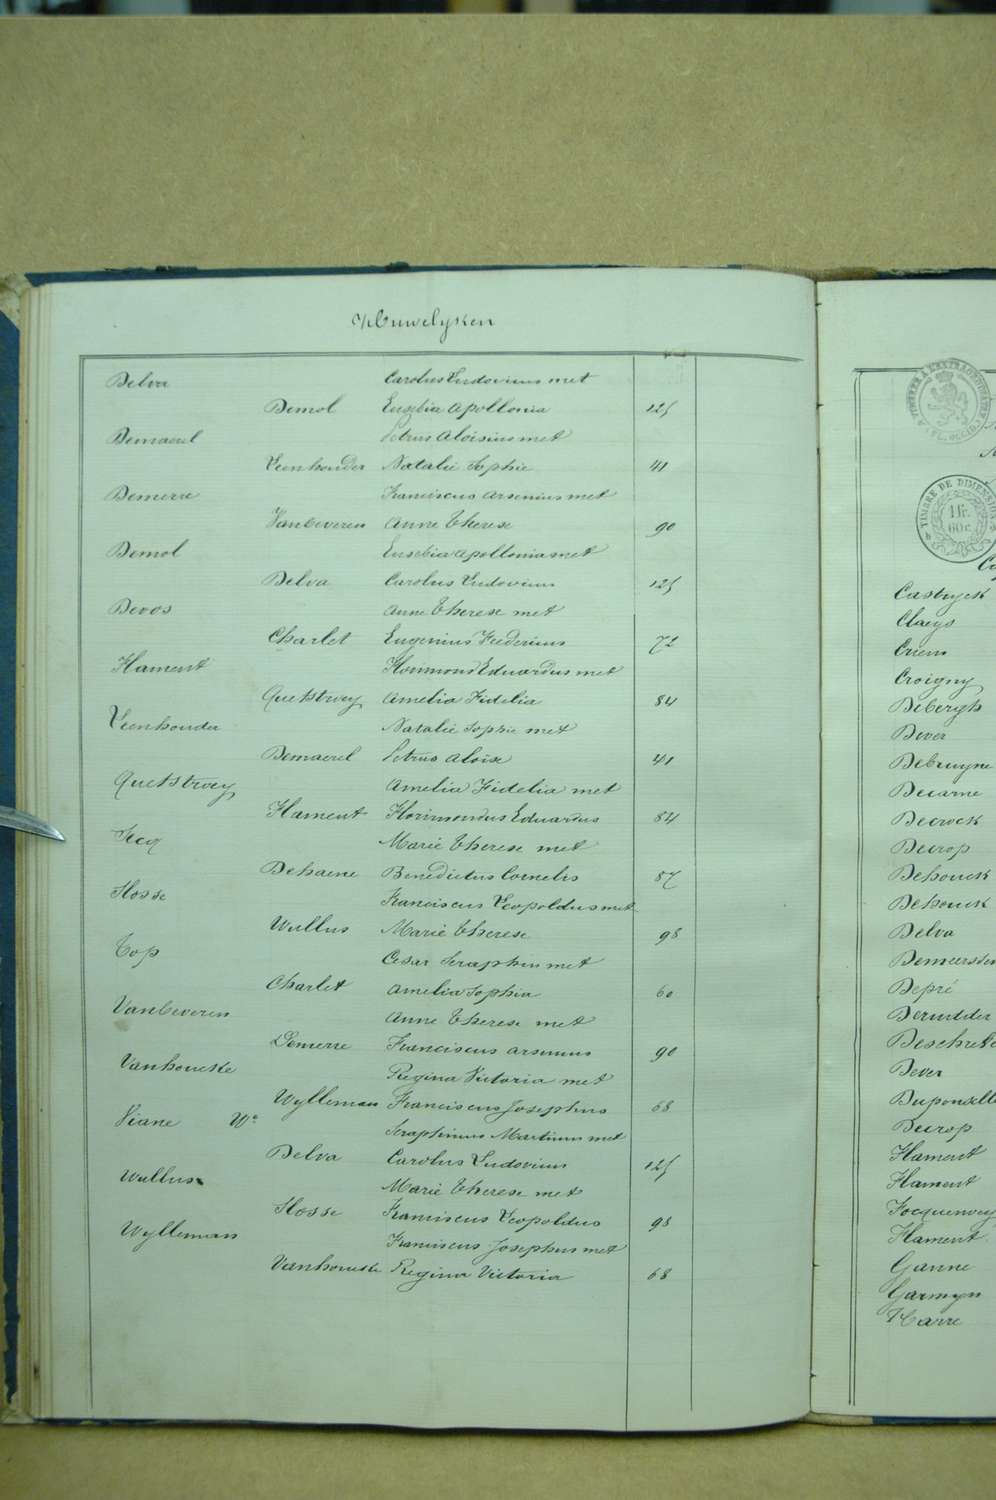 Huwelyken
Delva Carolus Ludovicus met
Demol Eugebia Apollonia 125
Demaerel Petrus Aloisius met
Veenhouder Natalie Sophie 41
Demerre Franciscus Arsenius met
Vanteveren Anne Therese 90
Demol Eusebia Apollonia met
Delva Carolus Ludovicus 125
Devos Anne Therese met
Charlet Eugenius Federicus 72
Flament Florimond Eduardus met
Quetstroey Amelia Fidelia 84
Veenhouder Natalie Sophie met
Demaerel Petrus Aloise 41
Quetstroey Amelia Fidelia met
Flament Florimondus Eduardus 84
Marie Therese met
Dehaene Benedictus Cornelis 87
Slosse Franciscus Leopoldus met
Wullus Marie Therese 98
Top Cesar Seraphin met
Charlet Amelia Sophia 60
Vanteveren Anne Therese met
Demerre Franciscus Arsenius 90
Vanhoucke Regina Victoria met
Wylleman Franciscus Josephus 68
Viane We Seraphinus Martinus met
Delva Carolus Ludovicus 125
Wullus Marie Therese met
Slosse Franciscus Leopoldus 98
Wylleman Franciscus Josephus met
Vanhoucke Regina Victoria 68
TIMBRE A L'EXTRAORDINAIRE
FL. OCCID.
TIMBRE DE DIMENSION
1 fr.
60 c.
Castryck
Claeys
Croigny
Debergh
Dever
Debruyne
Decarne
Decrock
Decrop
Dehouck
Dehouck
Delva
Depré
Derudder
Dever
Decrop
Flament
Flament
Flament
Ganne
Garmyn
Harre